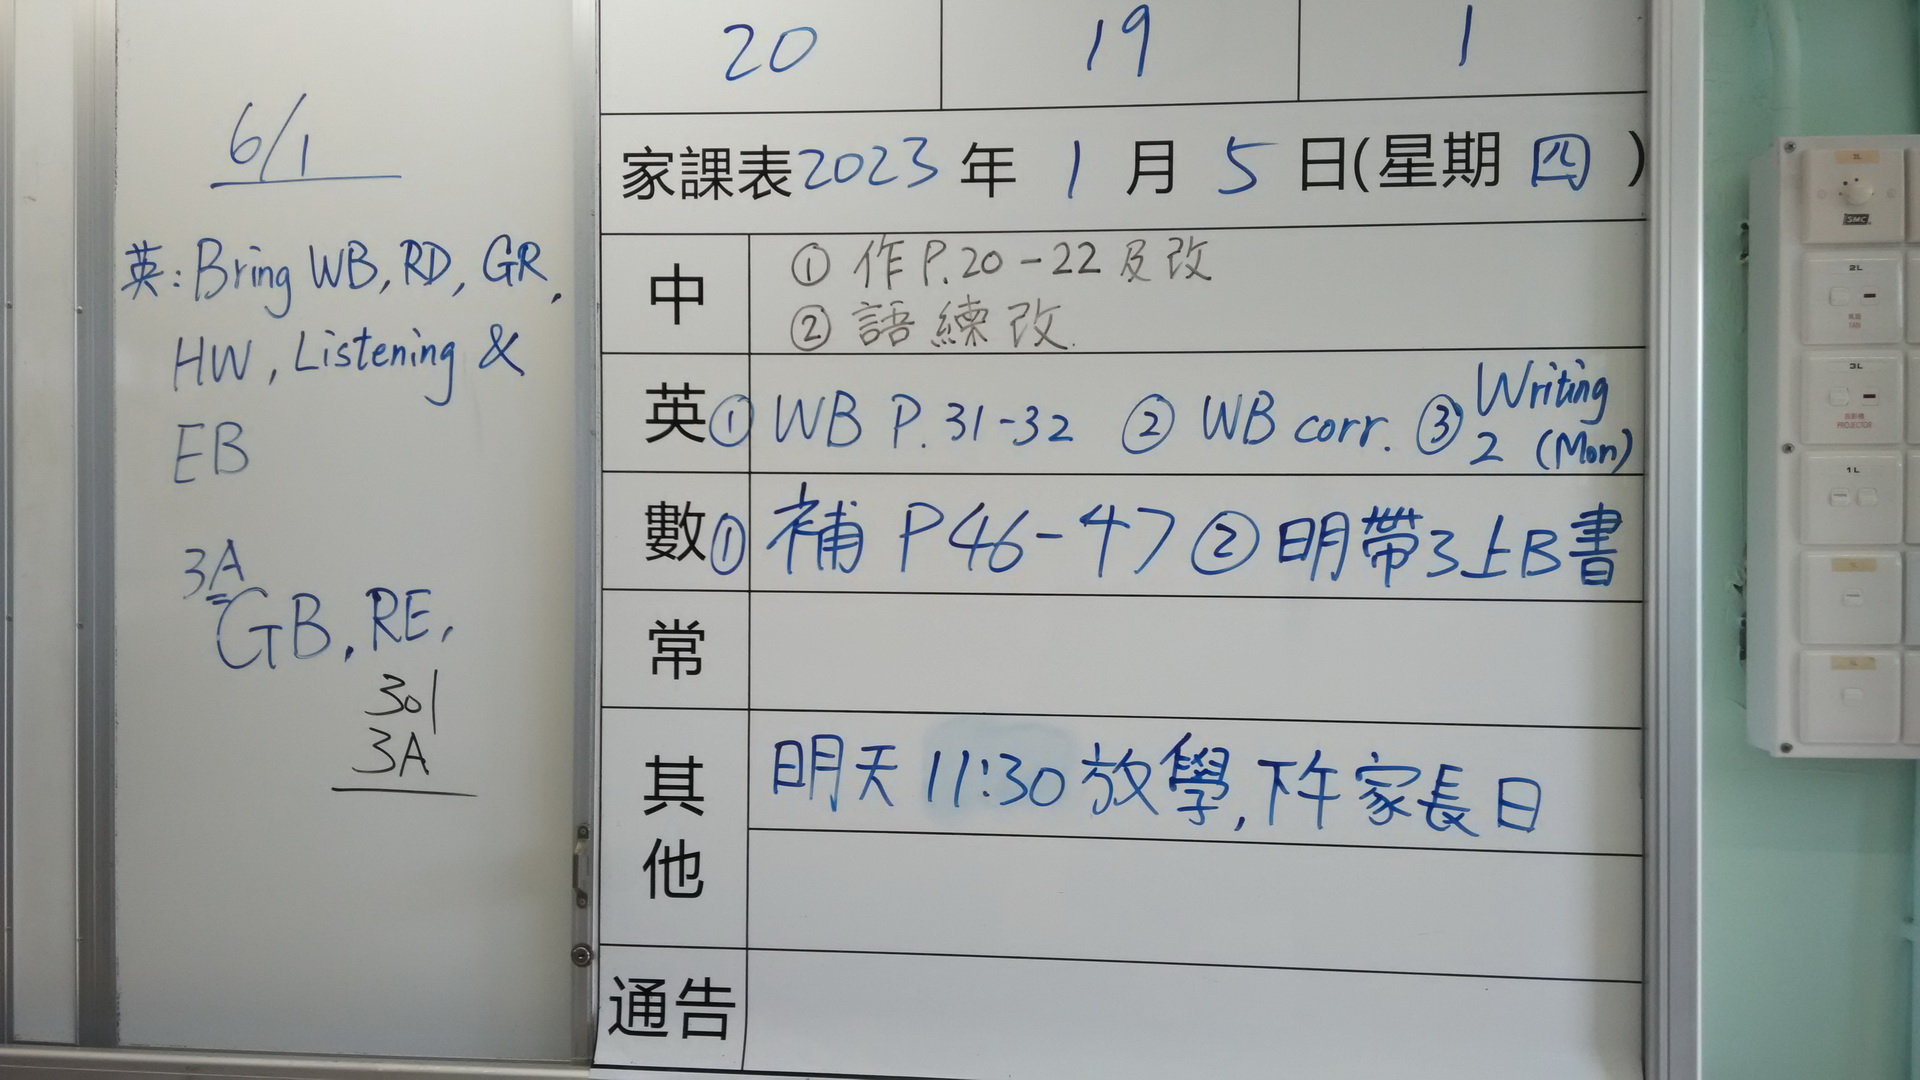 6/1
英: Bring WB, RD, GR,
HW, Listening &
EB
3A
GB, RE,
301
3A
20 19 1
家課表2023年1月5日(星期四)
中 ① 作P.20-22及改
② 語練改.
英 ① WB P.31-32 ② WB corr. ③ Writing
2 (Mon)
數 ① 補 P46-47 ② 明帶3上B書
常
其他 明天11:30放學,下午家長日
通告
SMC
2L
3L
PROJECTOR
1L